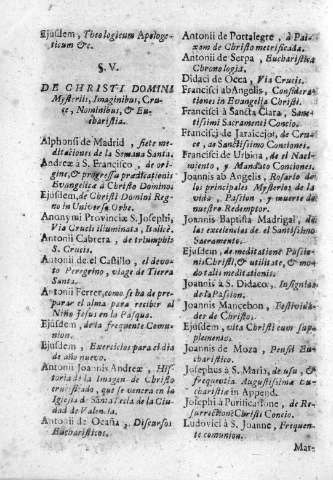 Ejusdem, Theologicum Apologe-
ticum &c.
§. V.
DE CHRISTI DOMINI
Mysteriis, Imaginibus, Cru-
ce, Nominibus, & Eu-
charistia.
Alphonsi de Madrid, siete me-
ditaciones de la Semana Santa.
Andreæ à S. Francisco, de ori-
gine, & progressu prædicationis
Evangelicæ à Christo Domino.
Ejusdem, de Christi Domini Reg-
no in Universo Orbe.
Anonymi Provinciæ S. Josephi,
Via Crucis illuminata, Italicè.
Antonii Cabrera, de triumphis
S. Crucis.
Antonii de el Castillo, el devo-
to Peregrino, viage de Tierra
Santa.
Antonii Ferrer, como se ha de pre-
parar el alma para recibir al
Niño Jesus en la Pasqua.
Ejusdem, de la frequente Comu-
nion.
Ejusdem, Exercicios para el dia
de año nuevo.
Antonii Joannis Andreæ, His-
toria de la Imagen de Christo
crucificado, que se venera en la
Iglesia de Santa Tecla de la Ciu-
dad de Valencia.
Antonii de Ocaña, Discursos
Eucharisticos.
Antonii de Portalegre, à Pai-
xom de Christo metrificada.
Antonii de Serpa, Eucharistica
Chronologia.
Didaci de Occa, Via Crucis.
Francisci ab Angelis, Considera-
tiones in Evangelia Christi.
Francisci à Sancta Clara, Sanc-
tissimi Sacramenti Concio.
Francisci de Jaraicejor, de Cru-
ce, ac Sanctissimo Conciones.
Francisci de Urbina, de el Naci-
miento, y Mandato Conciones.
Joannis ab Angelis, Rosario de
los principales Mysterios de la
vida, Passion, y muerte de
nuestro Redemptor.
Joannis Baptista Madrigal, de
las excelencias de el Santissimo
Sacramento.
Ejusdem, de meditatione Passio-
nis Christi, & utilitate, & mo-
do talis meditationis.
Joannis à S. Didaco, Insignias
de la Passion.
Joannis Mancebon, Festivida-
des de Christo.
Ejusdem, vita Christi cum sup-
plemento.
Joannis de Moza, Pensel Eu-
charistico.
Josephus à S. Maria, de usu, &
frequentia Augustissimæ Eu-
charistiæ in Append.
Josephi à Purificatione, de Re-
surrectione Christi Concio.
Ludovici à S. Joanne, Frequen-
te comunion.
Mar-